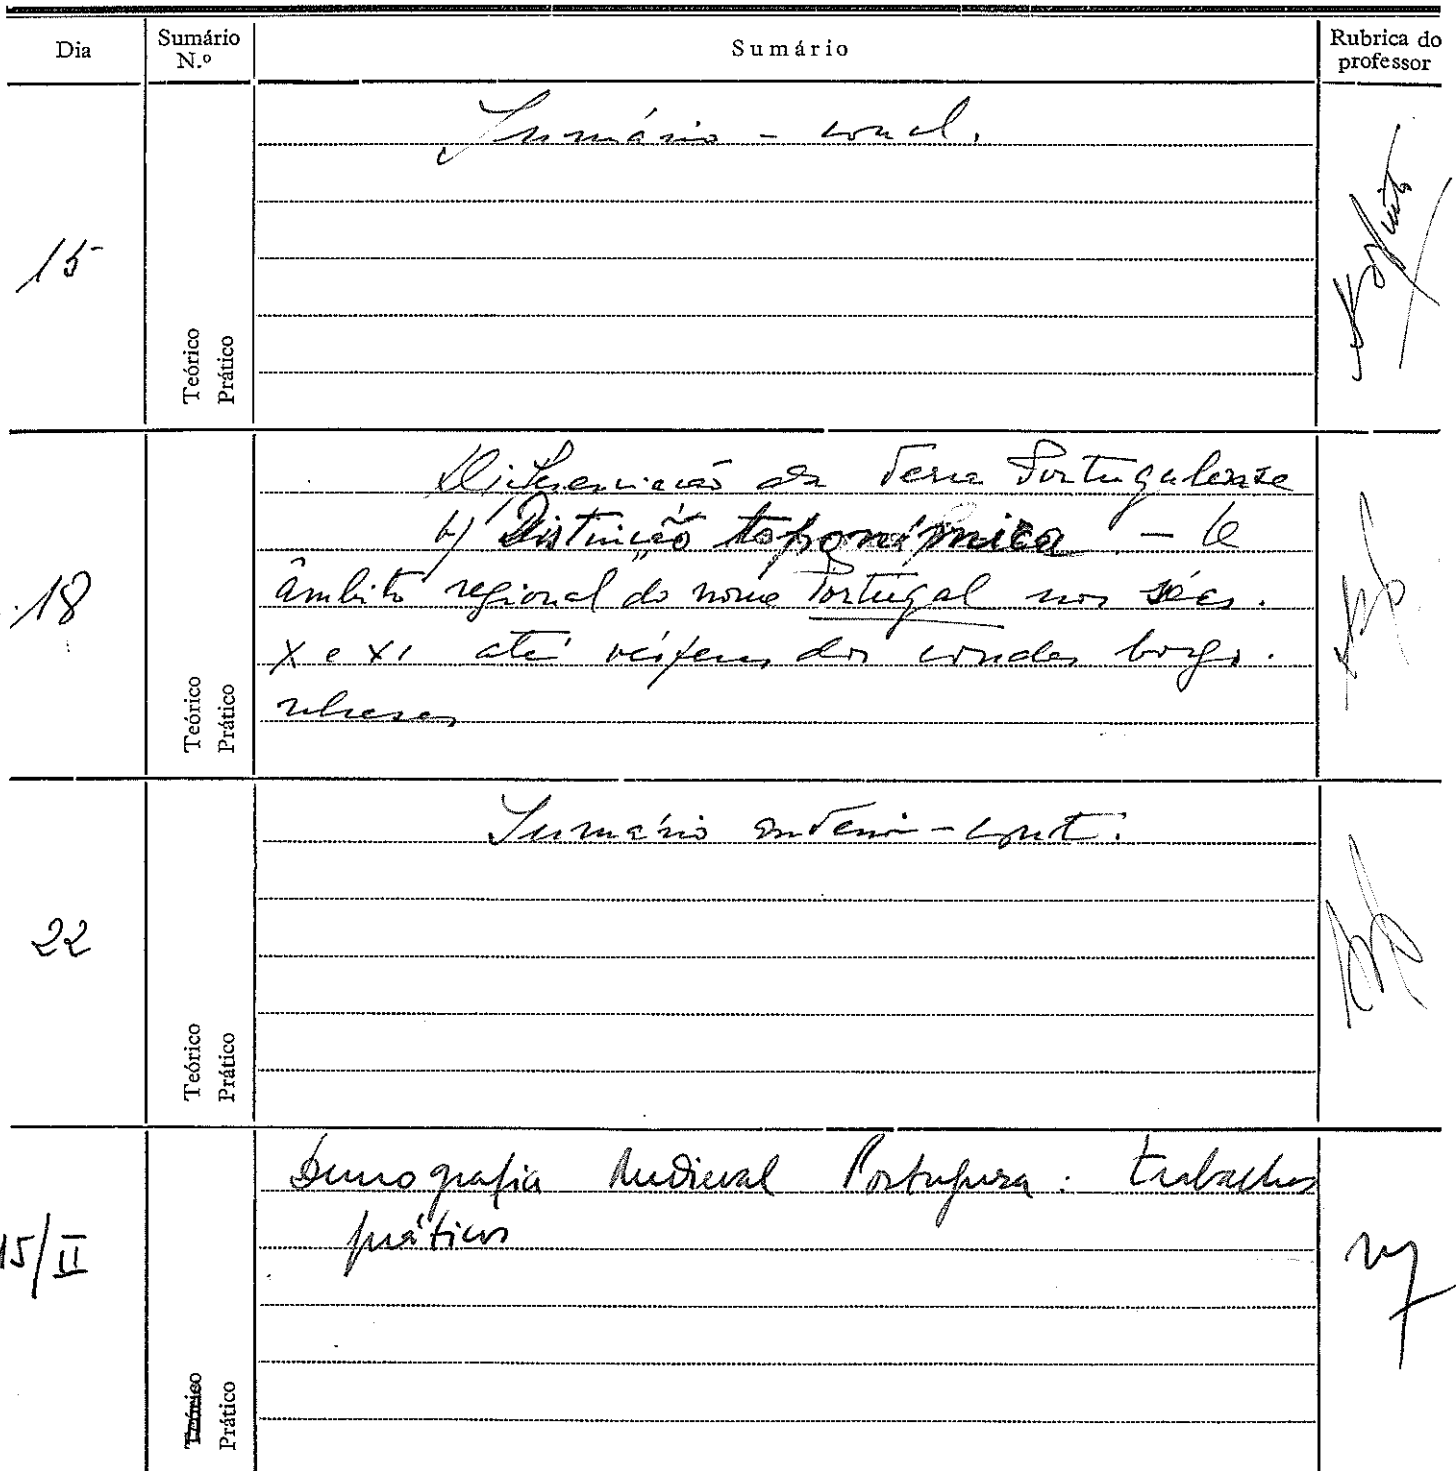 Dia
Sumário N.º
Sumário
Rubrica do professor
15
Teórico
Prático
Sumário - concl.
18
Teórico
Prático
Diferenciação da Terra Portugalense
b) Distinção toponímica - O
âmbito regional do nome Portugal nos sécs.
X e XI até dos condes borgo-
nheses
22
Teórico
Prático
Sumário anterior - cont.
15/II
Teórico
Prático
Demografia Medieval Portuguesa: trabalhos
práticos